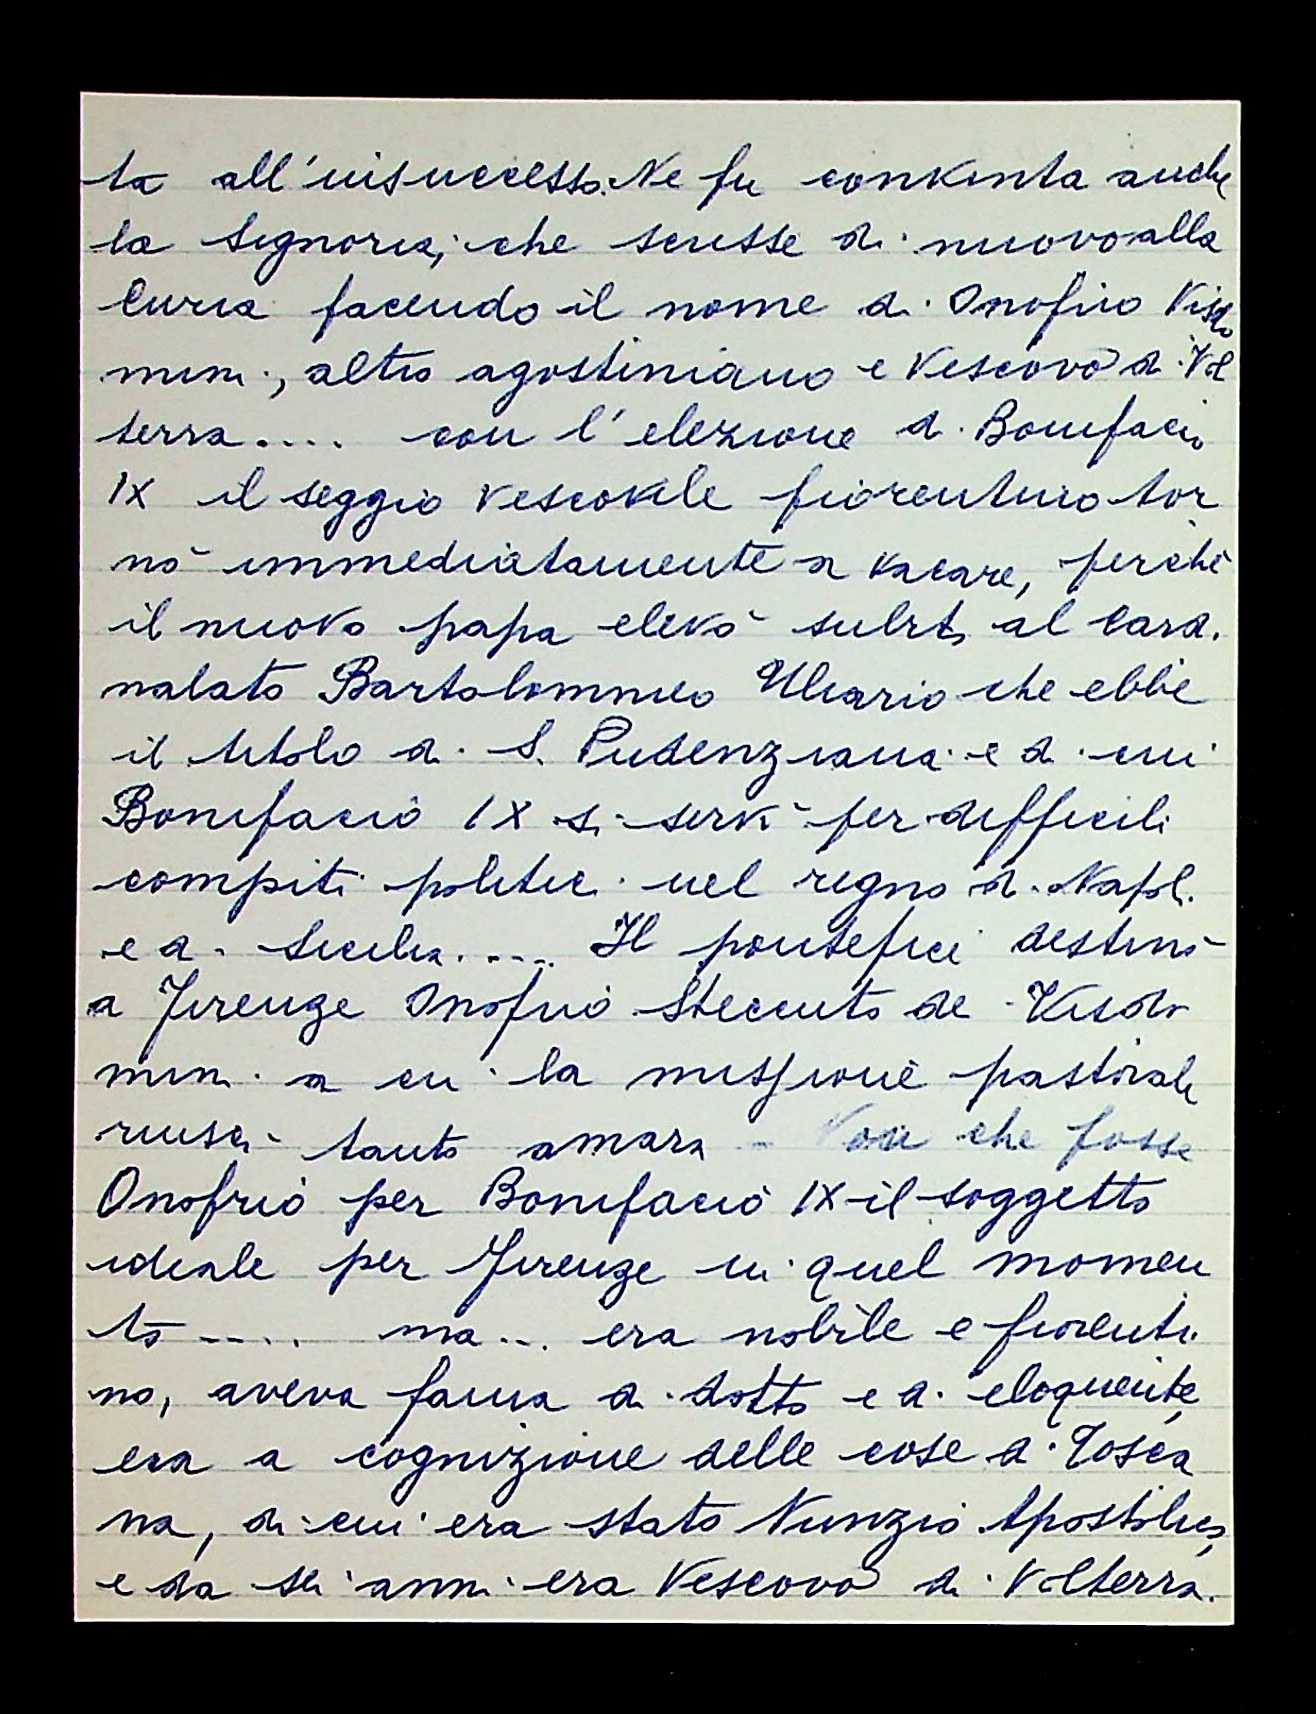 ta all'insuccesso. Ne fu convinta anche
la Signoria, che scrisse di nuovo alla
Curia facendo il nome di Onofrio Visdo
mini, altro agostiniano e Vescovo di Vol
terra.... con l'elezione di Bonifacio
IX il seggio Vescovile fiorentino tor
nò immediatamente a vacare, perchè
il nuovo papa elevò subito al Cardi
nalato Bartolommeo Uliario che ebbe
il titolo di S. Pudenziana e di cui
Bonifacio IX si servì per difficili
compiti politici nel regno di Napoli
e di Sicilia..... Il pontefice destinò
a Firenze Onofrio Steccuto de Visdo
mini a cui la missione pastorale
riuscì tanto amara - Non che fosse
Onofrio per Bonifacio IX il soggetto
ideale per Firenze in quel momen
to .... ma... era nobile e fiorenti
no, aveva fama di dotto e di eloquente,
era a cognizione delle cose di Tosca
na, di cui era stato Nunzio Apostolico,
e da sei anni era Vescovo di Volterra.